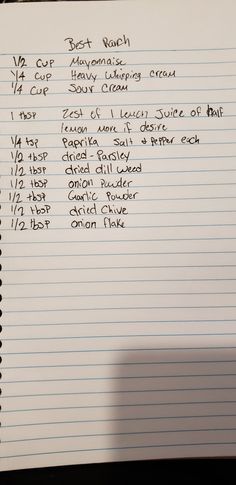 Best Ranch
1/2 cup Mayonnaise
1/4 cup Heavy Whipping cream
1/4 cup Sour Cream
1 tbsp Zest of 1 lemon Juice of half
lemon more if desire
1/4 tsp Paprika Salt & Pepper each
1/2 tbsp dried-Parsley
1/2 tbsp dried dill weed
1/2 tbsp onion Powder
1/2 tbsp Garlic Powder
1/2 tbsp dried Chive
1/2 tbsp onion flake